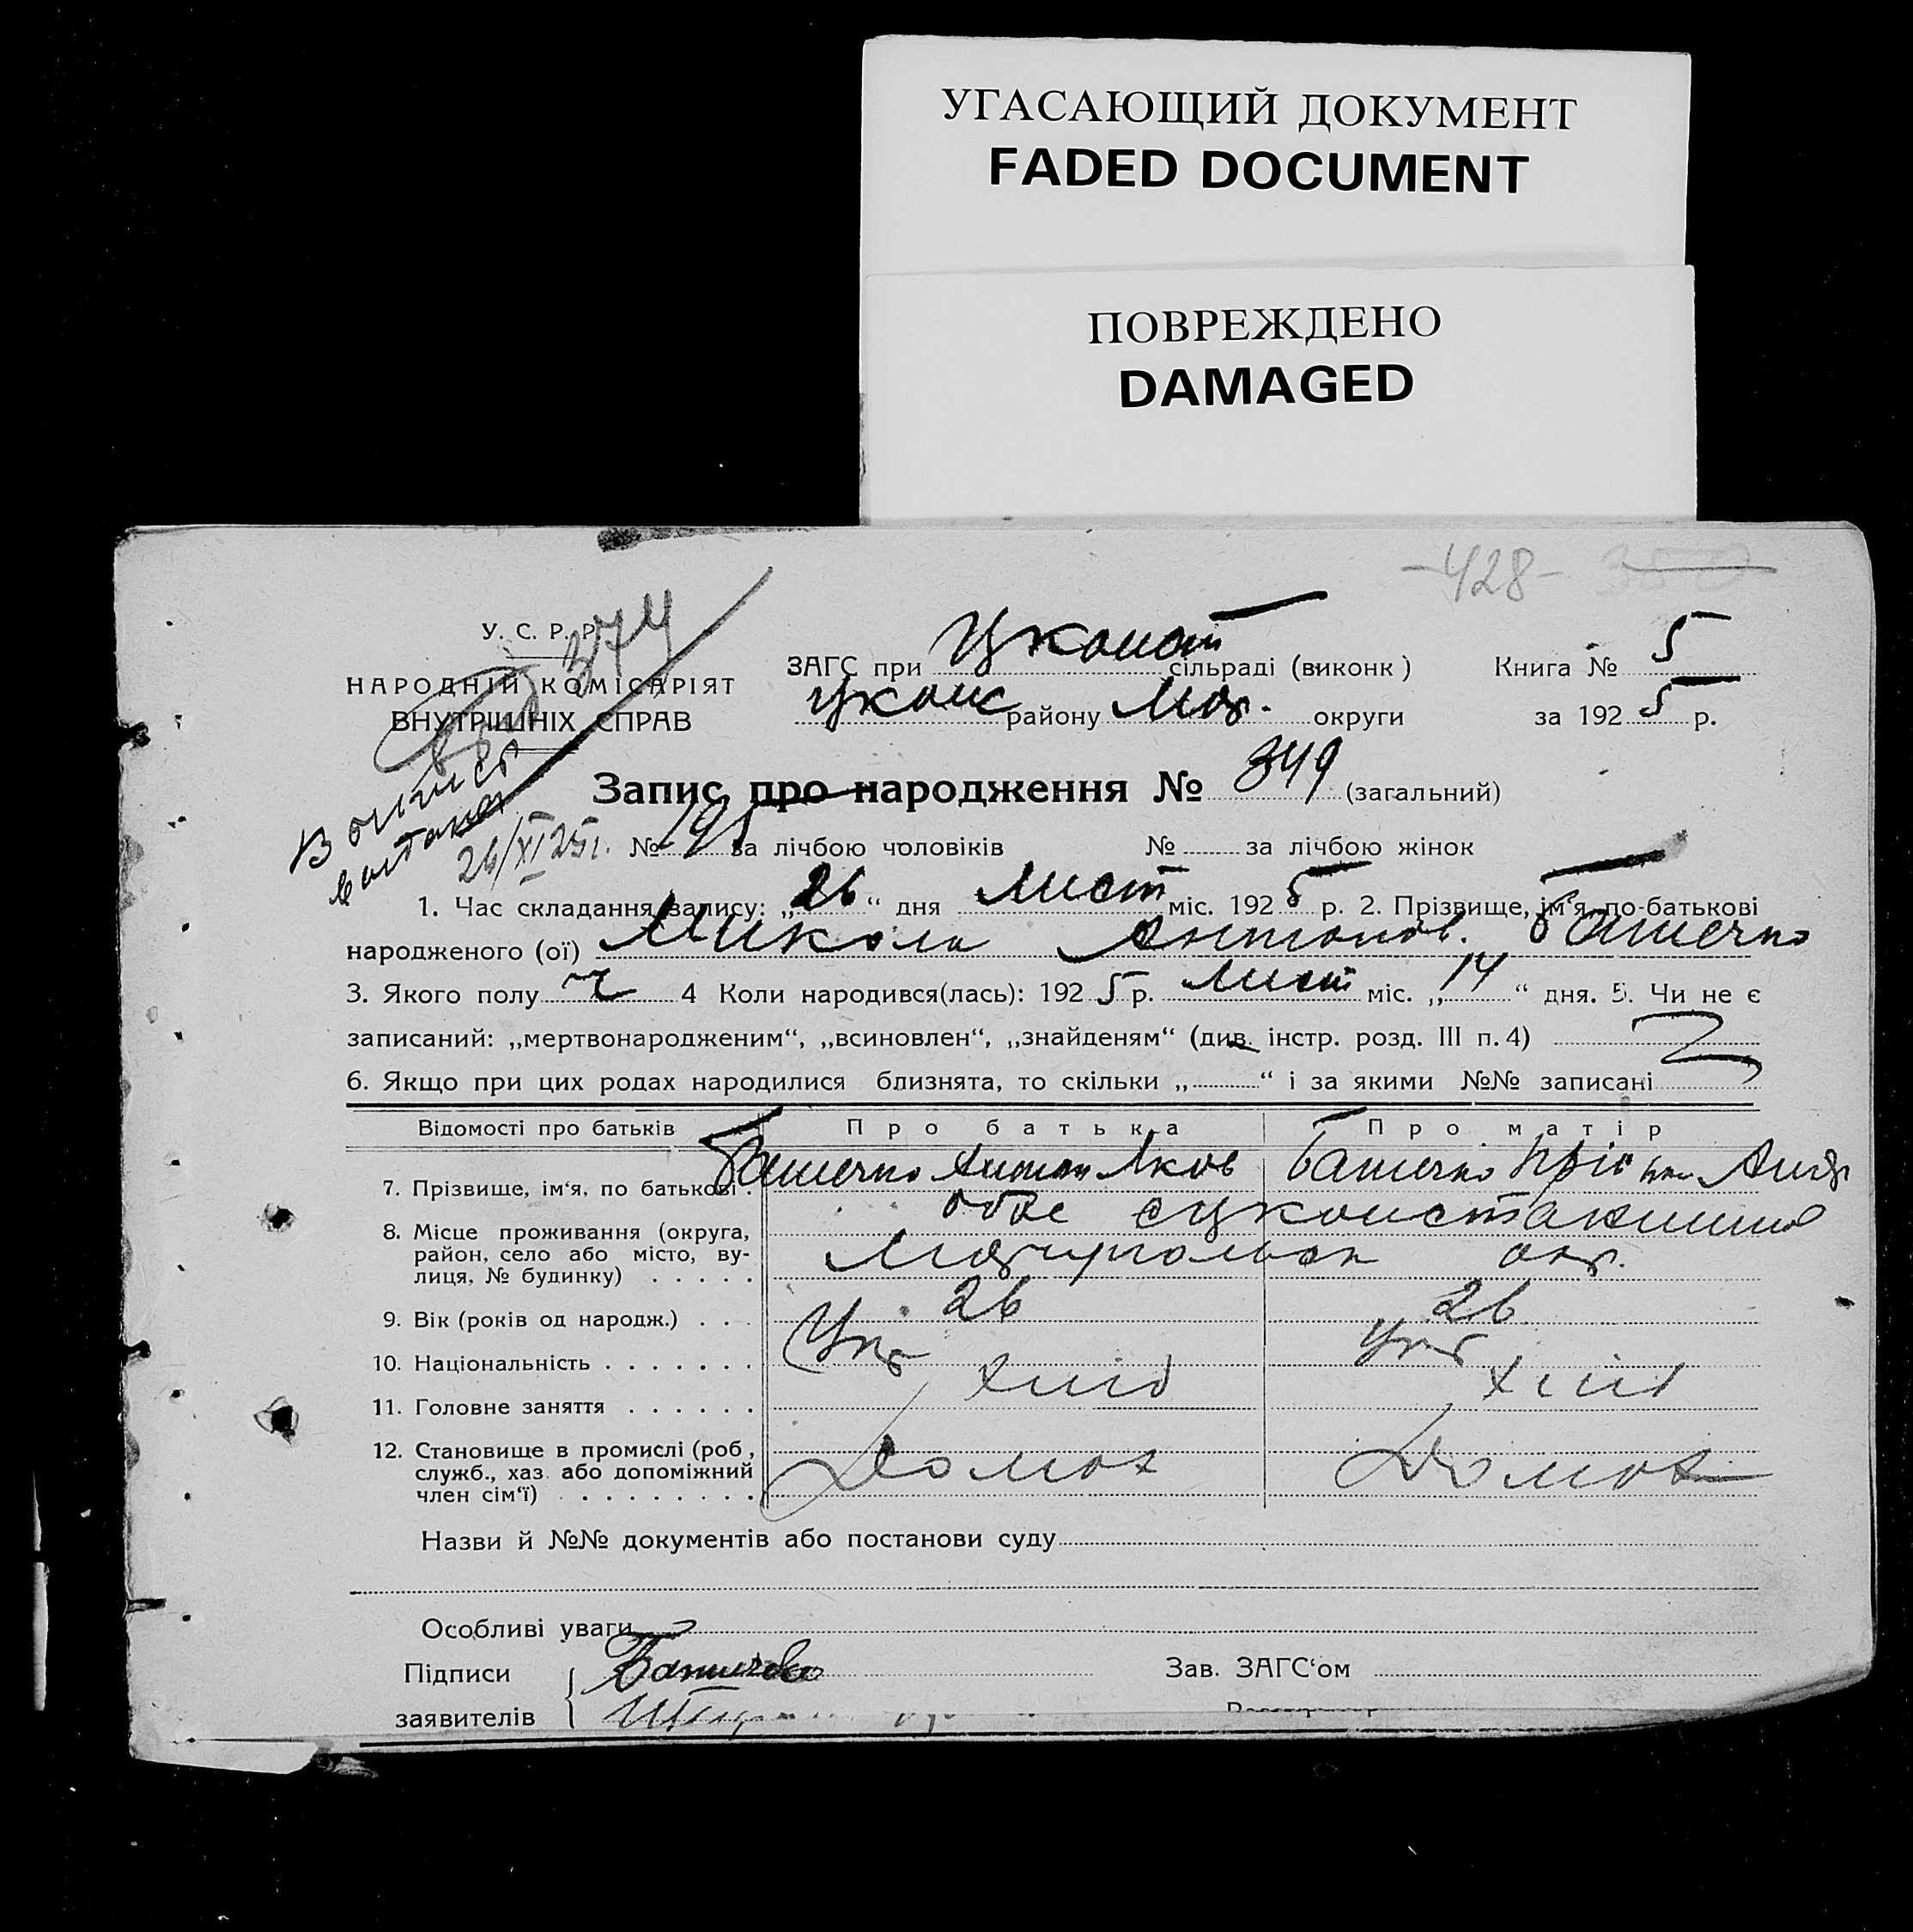 УГАСАЮЩИЙ ДОКУМЕНТ
FADED DOCUMENT
ПОВРЕЖДЕНО
DAMAGED
-428-
У. С. Р. Р.
374
НАРОДНІЙ КОМІСАРІЯТ
ВНУТРІШНІХ СПРАВ
ЗАГС при Цконст сільраді (виконк) Книга № 5
Цконс району Мар. округи за 1925 р.
Запис про народження № 349 (загальний)
26/XI 25 г. № 191 за лічбою чоловіків № за лічбою жінок
1. Час складання запису: „26“ дня Лист міс. 1925 р. 2. Прізвище, ім‘я, по-батькові
народженого (ої) Микола Антонов.
3. Якого полу ч 4 Коли народився(лась): 1925 р. Лист міс. „14“ дня. 5. Чи не є
записаний: „мертвонародженим“, „всиновлен“, „знайденям“ (див. інстр. розд. III п. 4)
6. Якщо при цих родах народилися близнята, то скільки „ “ і за якими №№ записані
Відомості про батьків Про батька Про матір
7. Прізвище, ім‘я, по батькові . Антон Яков
8. Місце проживання (округа, район, село або місто, ву-лиця, № будинку) . . . . . обоє окр.
9. Вік (років од народж.) . . . 26 26
10. Національність . . . . . . . Укр Укр
11. Головне заняття . . . . . . Хліб Хліб
12. Становище в промислі (роб., служб., хаз. або допоміжний член сім‘ї) . . . . . . . . . Домох Домох
Назви й №№ документів або постанови суду
Особливі уваги
Підписи
заявителів
Зав. ЗАГС‘ом